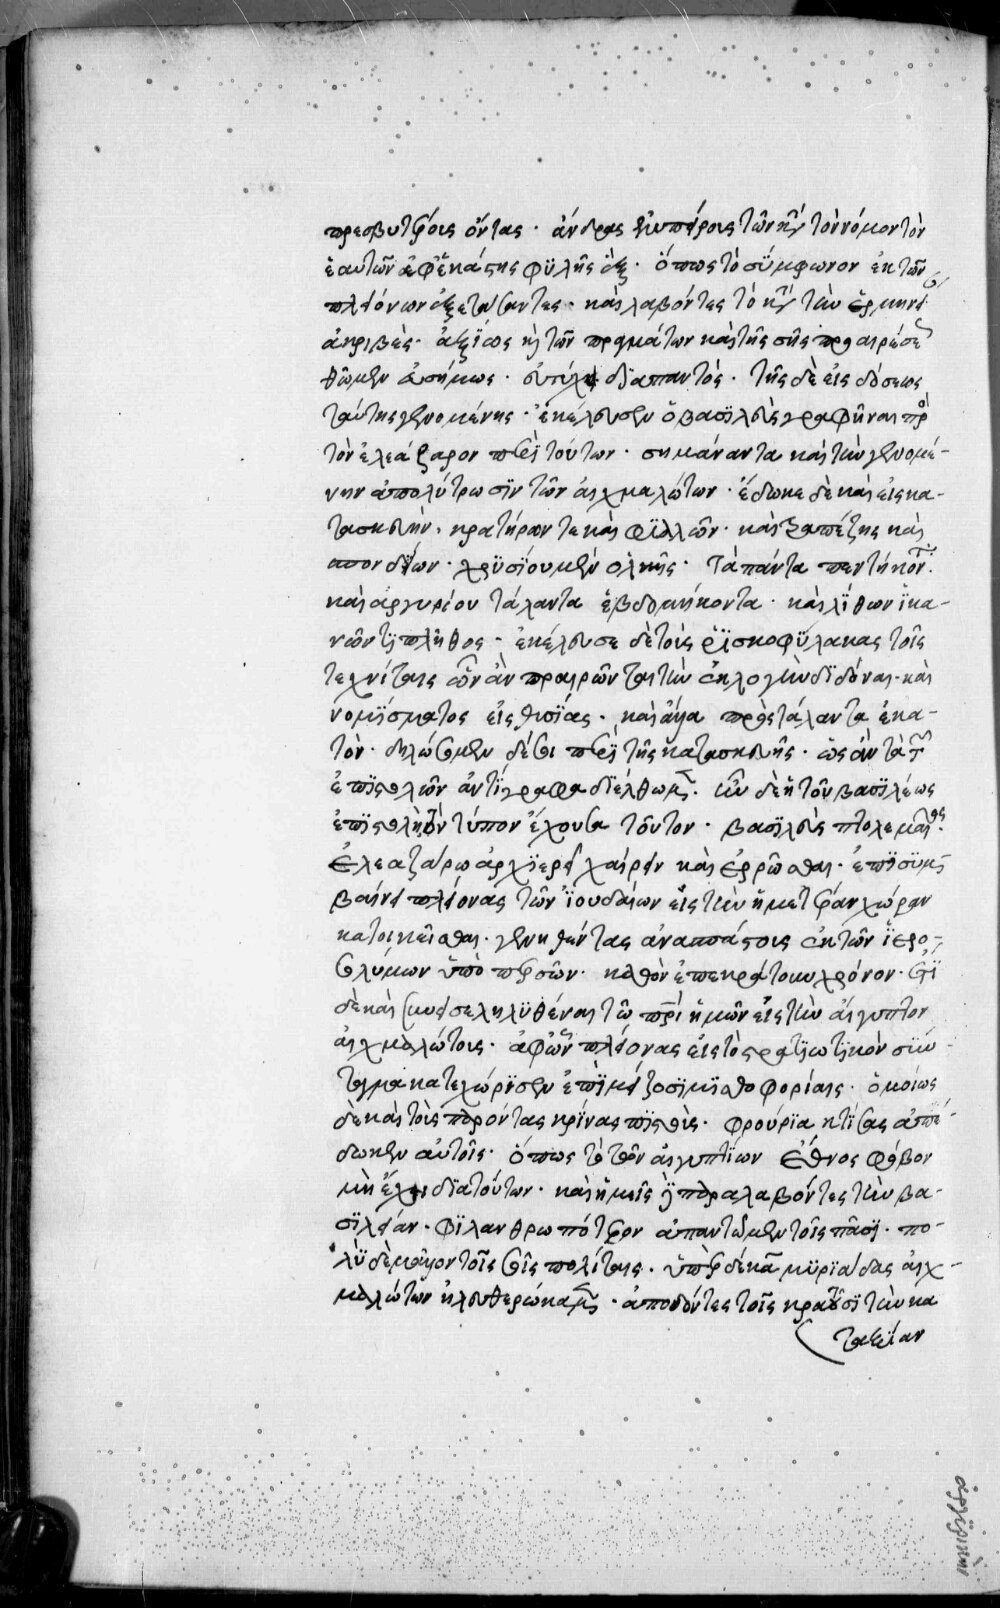 πρεσβυτέροις ὄντας · ἄνδρας ἐμπείρους τῶν κατὰ τὸν νόμον τὸν
ἑαυτῶν ἀφ' ἑκάστης φυλῆς ἕξ · ὅπως τὸ σύμφωνον ἐκ τῶν
πλειόνων ἐξετάσαντες · καὶ λαβόντες τὸ κατὰ τὴν ἑρμηνεί
ἀκριβὲς · ἀξίως καὶ τῶν πραγμάτων καὶ τῆς σῆς προαιρέσεως
θῶμεν εὐσήμως · εὐτύχει διαπαντός · τῆς δὲ εἰσδόσεως
ταύτης γενομένης · ἐκέλευσεν ὁ βασιλεὺς γραφῆναι πρὸς
τὸν ἐλεάζαρον περὶ τούτων · σημάναντα καὶ τὴν γενομέ-
νην ἀπολύτρωσιν τῶν αἰχμαλώτων · ἔδωκε δὲ καὶ εἰς κα-
τασκευὴν · κρατήρων τε καὶ φιαλῶν · καὶ τραπέζης καὶ
σπονδείων · χρυσίου μὲν ὁλκῆς · τάλαντα πεντήκοντα
καὶ ἀργυρίου τάλαντα ἑβδομήκοντα · καὶ λίθων ἱκα-
νῶν τι πλῆθος · ἐκέλευσε δὲ τοὺς ῥισκοφύλακας τοῖς
τεχνίταις ὧν ἂν προαιρῶνται τὴν ἐκλογὴν διδόναι · καὶ
νομίσματος εἰς θυσίας · καὶ ἄλλα πρὸς τάλαντα ἑκα-
τὸν · δηλώσομεν δέ σοι περὶ τῆς κατασκευῆς · ὡς ἂν τὰ τῶν
ἐπιστολῶν ἀντίγραφα διέλθωμεν · ἦν δὲ ἡ τοῦ βασιλέως
ἐπιστολὴ τὸν τύπον ἔχουσα τοῦτον · βασιλεὺς πτολεμαῖος ·
ἐλεαζάρω ἀρχιερεῖ χαίρειν καὶ ἐρρῶσθαι · ἐπεὶ συμ-
βαίνει πλείονας τῶν ἰουδαίων εἰς τὴν ἡμετέραν χώραν
κατοικεῖσθαι · γενηθέντας ἀνασπάστους ἐκ τῶν ἱερο-
σολύμων ὑπὸ περσῶν · καθ' ὃν ἐπεκράτουν χρόνον · ἔτι
δὲ καὶ συνεισεληλυθέναι τῶ πατρὶ ἡμῶν εἰς τὴν αἴγυπτον
αἰχμαλώτους · ἀφ' ὧν πλείονας εἰς τὸ στρατιωτικὸν σύν-
ταγμα κατεχώρισεν ἐπὶ μείζοσι μισθοφορίαις · ὁμοίως
δὲ καὶ τοὺς παρόντας κρίνας πιστοὺς · φρούρια κτίσας ἀπέ-
δωκεν αὐτοῖς · ὅπως τὸ τῶν αἰγυπτίων ἔθνος φόβον
μὴ ἔχῃ διὰ τούτων · καὶ ἡμεῖς δὲ παραλαβόντες τὴν βα-
σιλείαν · φιλανθρωπότερον ἀπαντῶμεν τοῖς πᾶσι · πο-
λὺ δὲ μᾶλλον τοῖς σοῖς πολίταις · ὑπὲρ δέκα μυριάδας αἰχ-
μαλώτων ἠλευθερώκαμεν · ἀποδόντες τοῖς κρατοῦσι τὴν κα
ταξίαν